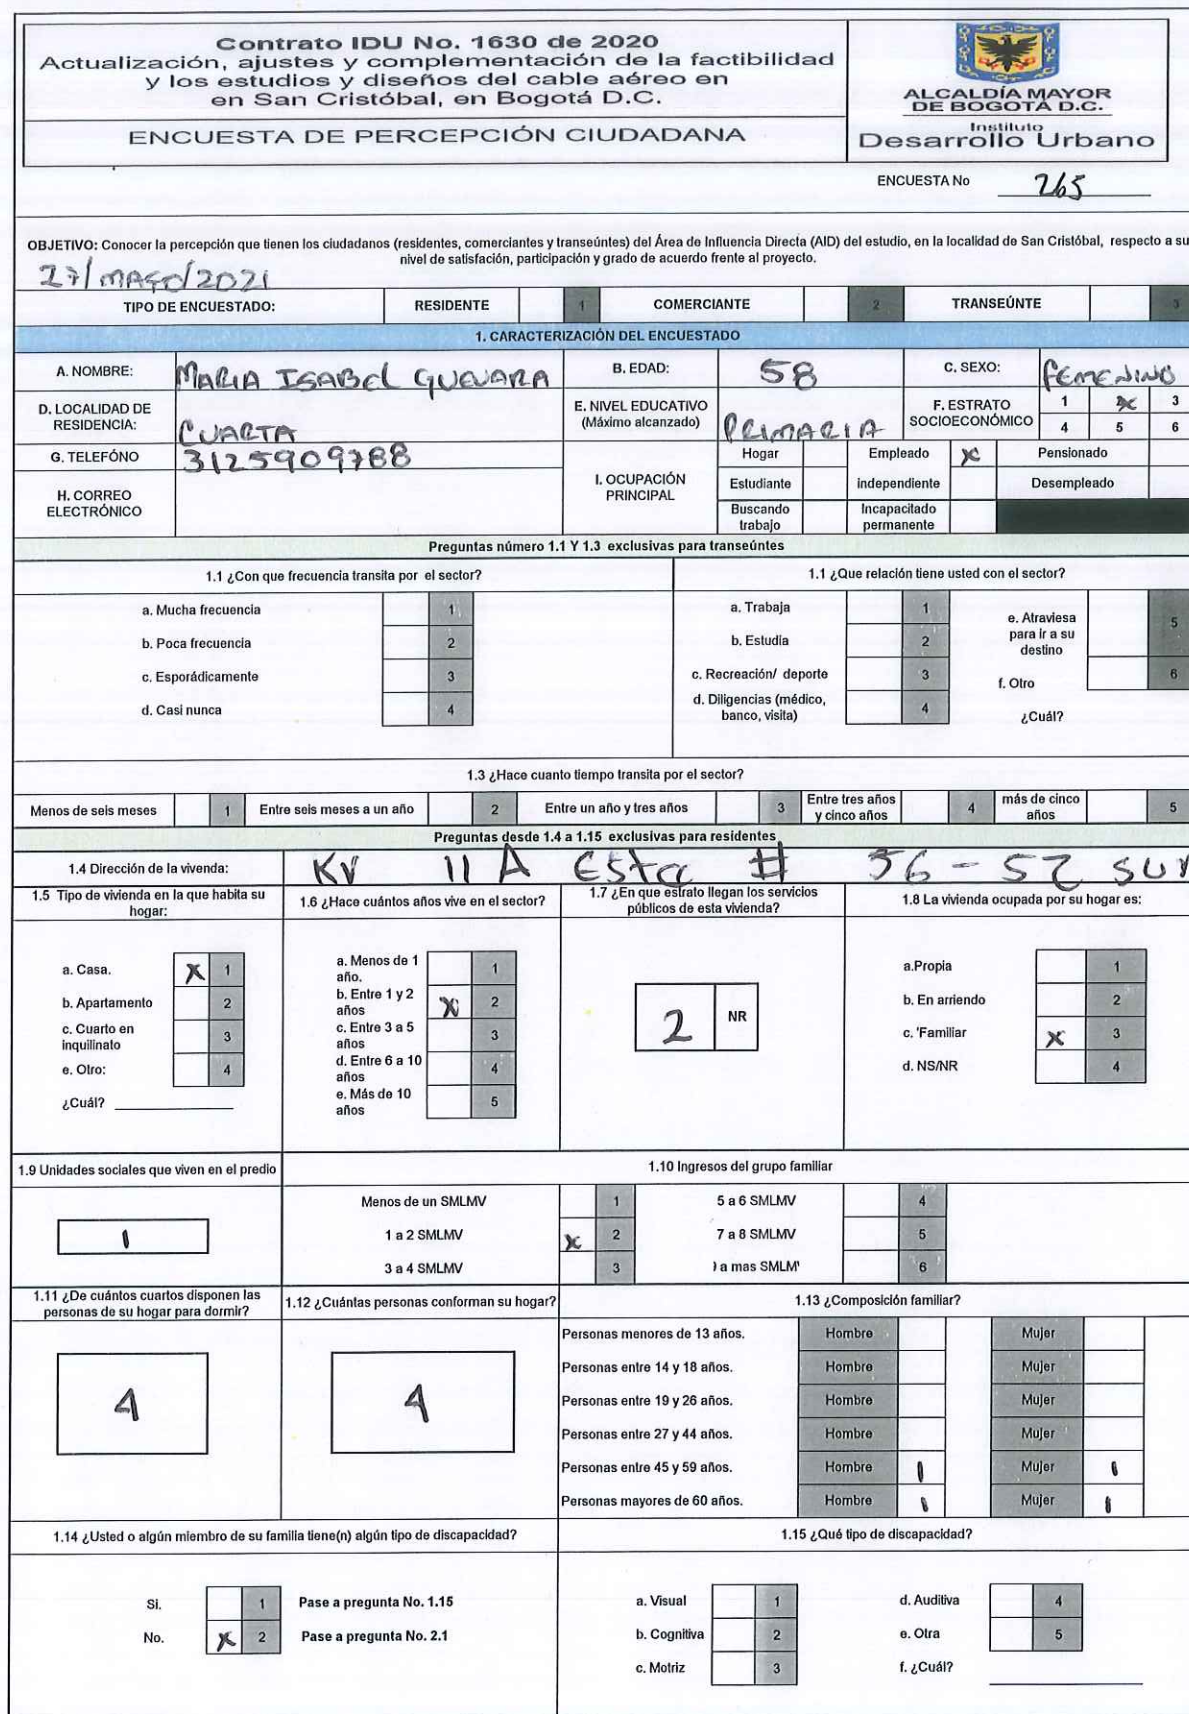 Contrato IDU No. 1630 de 2020
Actualización, ajustes y complementación de la factibilidad
y los estudios y diseños del cable aéreo en
en San Cristóbal, en Bogotá D.C.
ENCUESTA DE PERCEPCIÓN CIUDADANA
ALCALDÍA MAYOR
DE BOGOTÁ D.C.
Instituto
Desarrollo Urbano
ENCUESTA No 265
OBJETIVO: Conocer la percepción que tienen los ciudadanos (residentes, comerciantes y transeúntes) del Área de Influencia Directa (AID) del estudio, en la localidad de San Cristóbal, respecto a su
nivel de satisfacción, participación y grado de acuerdo frente al proyecto.
/2021
TIPO DE ENCUESTADO: RESIDENTE 1 COMERCIANTE 2 TRANSEÚNTE 3
1. CARACTERIZACIÓN DEL ENCUESTADO
A. NOMBRE: MARIA ISABEL GUEVARA B. EDAD: 58 C. SEXO: FEMENINO
D. LOCALIDAD DE RESIDENCIA: CUARTA E. NIVEL EDUCATIVO (Máximo alcanzado) PRIMARIA F. ESTRATO SOCIOECONÓMICO 1 X 3
4 5 6
G. TELEFÓNO 3125909788
H. CORREO ELECTRÓNICO
I. OCUPACIÓN PRINCIPAL
Hogar Empleado X Pensionado
Estudiante independiente Desempleado
Buscando trabajo Incapacitado permanente
Preguntas número 1.1 Y 1.3 exclusivas para transeúntes
1.1 ¿Con que frecuencia transita por el sector?
a. Mucha frecuencia 1
b. Poca frecuencia 2
c. Esporádicamente 3
d. Casi nunca 4
1.1 ¿Que relación tiene usted con el sector?
a. Trabaja 1
b. Estudia 2
c. Recreación/ deporte 3
d. Diligencias (médico, banco, visita) 4
e. Atraviesa para ir a su destino 5
f. Otro 6
¿Cuál?
1.3 ¿Hace cuanto tiempo transita por el sector?
Menos de seis meses 1 Entre seis meses a un año 2 Entre un año y tres años 3 Entre tres años y cinco años 4 más de cinco años 5
Preguntas desde 1.4 a 1.15 exclusivas para residentes
1.4 Dirección de la vivenda: KV 11 A Este # 56 - 52 SUR
1.5 Tipo de vivienda en la que habita su hogar:
a. Casa. X 1
b. Apartamento 2
c. Cuarto en inquilinato 3
e. Otro: 4
¿Cuál?
1.6 ¿Hace cuántos años vive en el sector?
a. Menos de 1 año. 1
b. Entre 1 y 2 años X 2
c. Entre 3 a 5 años 3
d. Entre 6 a 10 años 4
e. Más de 10 años 5
1.7 ¿En que estrato llegan los servicios públicos de esta vivienda?
2 NR
1.8 La vivienda ocupada por su hogar es:
a.Propia 1
b. En arriendo 2
c. 'Familiar X 3
d. NS/NR 4
1.9 Unidades sociales que viven en el predio
1
1.10 Ingresos del grupo familiar
Menos de un SMLMV 1 5 a 6 SMLMV 4
1 a 2 SMLMV X 2 7 a 8 SMLMV 5
3 a 4 SMLMV 3 a mas SMLM 6
1.11 ¿De cuántos cuartos disponen las personas de su hogar para dormir?
4
1.12 ¿Cuántas personas conforman su hogar?
4
1.13 ¿Composición familiar?
Personas menores de 13 años. Hombre Mujer
Personas entre 14 y 18 años. Hombre Mujer
Personas entre 19 y 26 años. Hombre Mujer
Personas entre 27 y 44 años. Hombre Mujer
Personas entre 45 y 59 años. Hombre 1 Mujer 1
Personas mayores de 60 años. Hombre 1 Mujer 1
1.14 ¿Usted o algún miembro de su familia tiene(n) algún tipo de discapacidad?
Si. 1 Pase a pregunta No. 1.15
No. X 2 Pase a pregunta No. 2.1
1.15 ¿Qué tipo de discapacidad?
a. Visual 1 d. Auditiva 4
b. Cognitiva 2 e. Otra 5
c. Motriz 3 f. ¿Cuál?